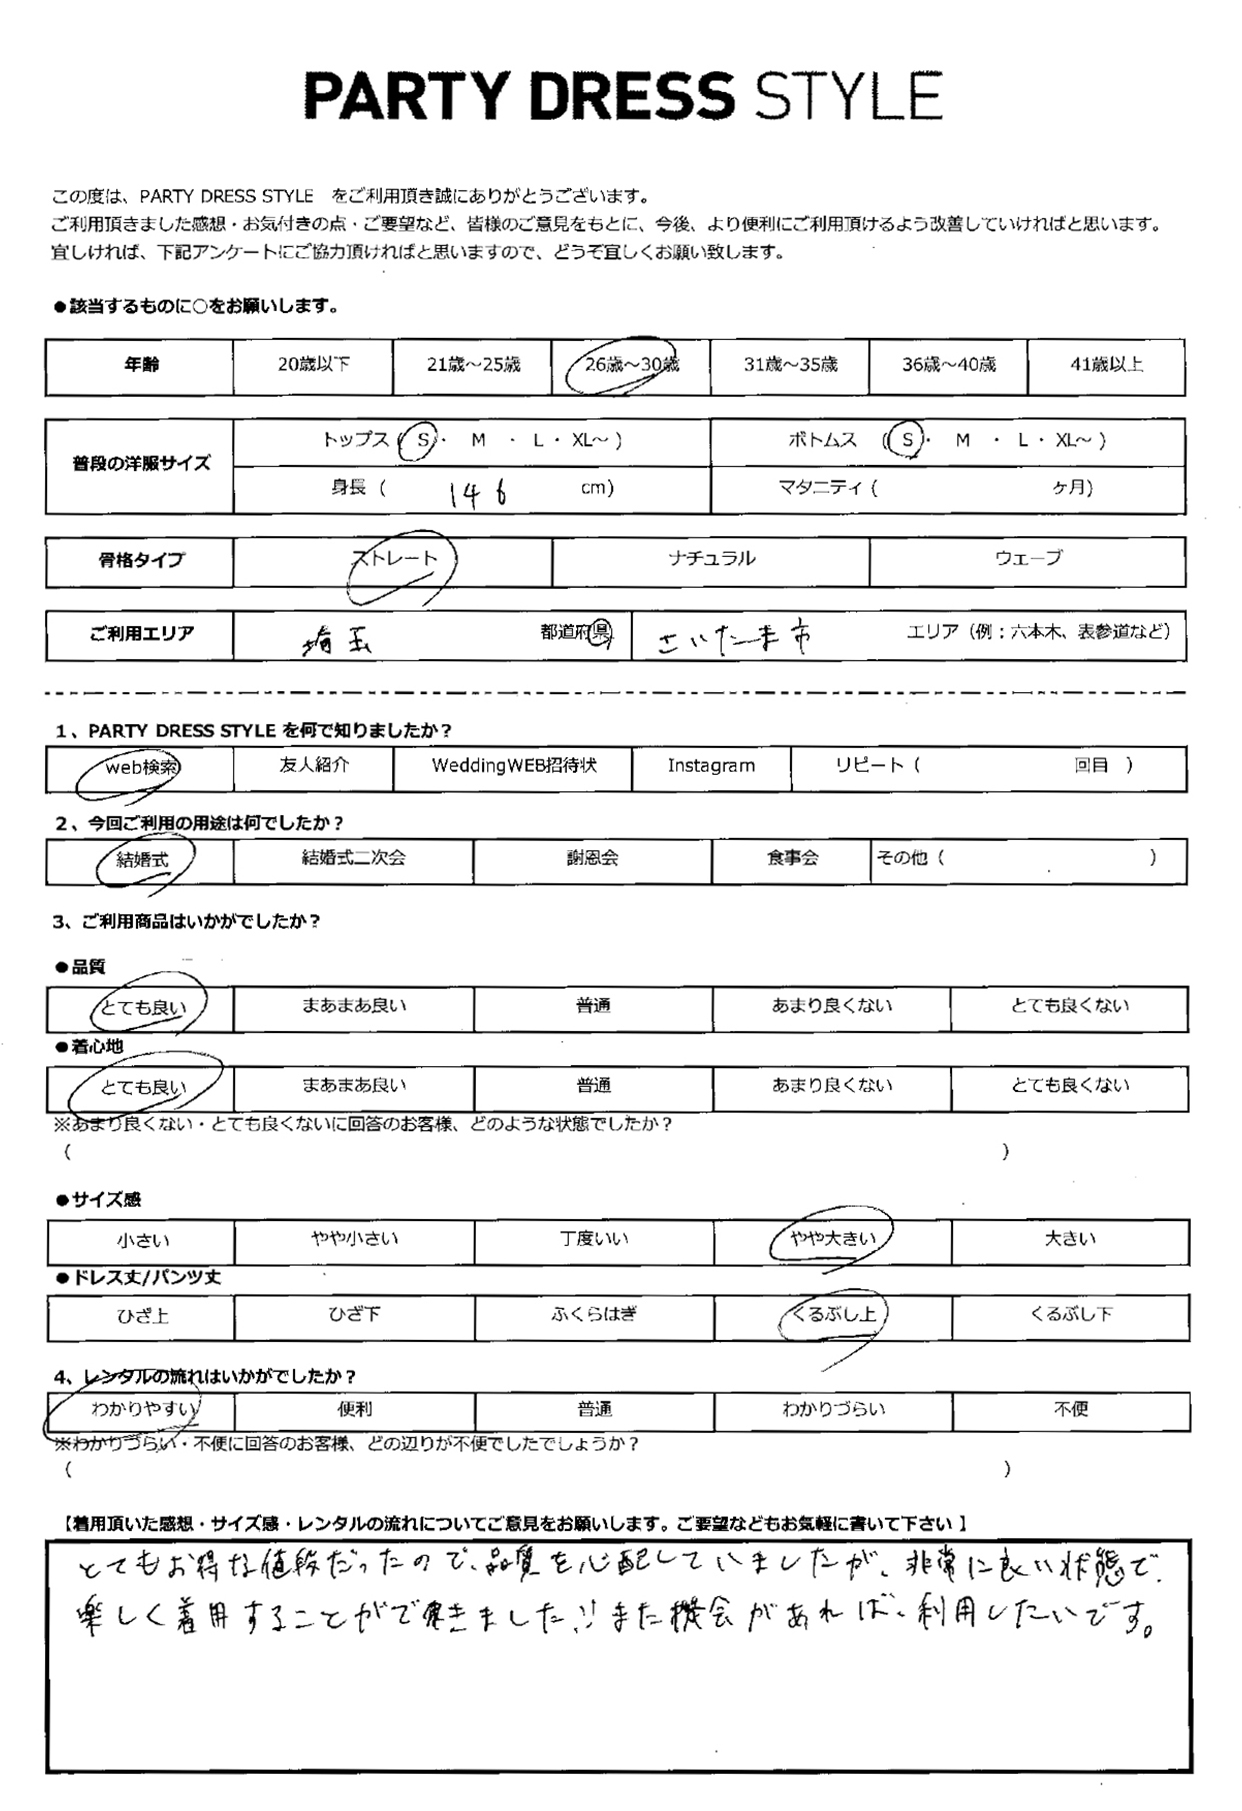 PARTY DRESS STYLE
この度は、PARTY DRESS STYLE をご利用頂き誠にありがとうございます。
ご利用頂きました感想・お気付きの点・ご要望など、皆様のご意見をもとに、今後、より便利にご利用頂けるよう改善していければと思います。
宜しければ、下記アンケートにご協力頂ければと思いますので、どうぞ宜しくお願い致します。
●該当するものに○をお願いします。
年齢 20歳以下 21歳～25歳 26歳～30歳 31歳～35歳 36歳～40歳 41歳以上
普段の洋服サイズ トップス ( S ・ M ・ L ・ XL～ ) ボトムス ( S ・ M ・ L ・ XL～ )
身長 ( 146 cm) マタニティ ( ヶ月)
骨格タイプ ストレート ナチュラル ウェーブ
ご利用エリア 埼玉 都道府県 さいたま市 エリア（例：六本木、表参道など）
1、PARTY DRESS STYLE を何で知りましたか？
web検索 友人紹介 WeddingWEB招待状 Instagram リピート（ 回目 ）
2、今回ご利用の用途は何でしたか？
結婚式 結婚式二次会 謝恩会 食事会 その他（ ）
3、ご利用商品はいかがでしたか？
●品質
とても良い まあまあ良い 普通 あまり良くない とても良くない
●着心地
とても良い まあまあ良い 普通 あまり良くない とても良くない
※あまり良くない・とても良くないに回答のお客様、どのような状態でしたか？
（ ）
●サイズ感
小さい やや小さい 丁度いい やや大きい 大きい
●ドレス丈/パンツ丈
ひざ上 ひざ下 ふくらはぎ くるぶし上 くるぶし下
4、レンタルの流れはいかがでしたか？
わかりやすい 便利 普通 わかりづらい 不便
※わかりづらい・不便に回答のお客様、どの辺りが不便でしたでしょうか？
（ ）
【着用頂いた感想・サイズ感・レンタルの流れについてご意見をお願いします。ご要望などもお気軽に書いて下さい】
とてもお得な値段だったので、品質を心配していましたが、非常に良い状態で、
楽しく着用することができました!! また機会があれば、利用したいです。